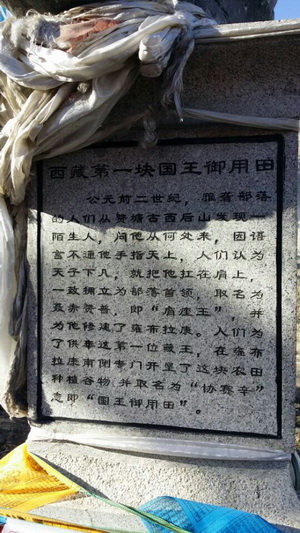 西藏第一块国王御用田
公元前二世纪，雅砻部落
的人们从赞塘古西后山发现一
陌生人，问他从何处来，因语
言不通他手指天上，人们认为
天子下凡，就把他扛在肩上，
一致拥立为部落首领，取名为
聂赤赞普，即“肩座王”，并
为他修建了雍布拉康。人们为
了供奉这第一位藏王，在雍布
拉康南侧专门开垦了这块农田
种植谷物，并取名为“协赛辛”
意即“国王御用田”。